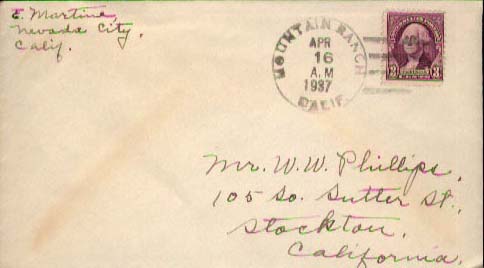 E. Martine,
Nevada City,
Calif.
MOUNTAIN RANCH
APR
16
A.M
1937
CALIF.
3 3
CENTS
Mr. W. W. Phillips,
105 So. Sutter St.,
Stockton,
California,